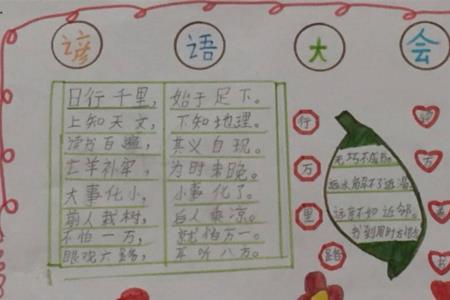 谚 语 大 会
日行千里， 始于足下。
上知天文， 下知地理。
读书百遍， 其义自现。
亡羊补牢， 为时未晚。
大事化小， 小事化了。
前人栽树， 后人乘凉。
不怕一万， 就怕万一。
眼观六路， 耳听八方。
行
万
里
路
无巧不成书。
远水解不了近渴。
远亲不如近邻。
万
书